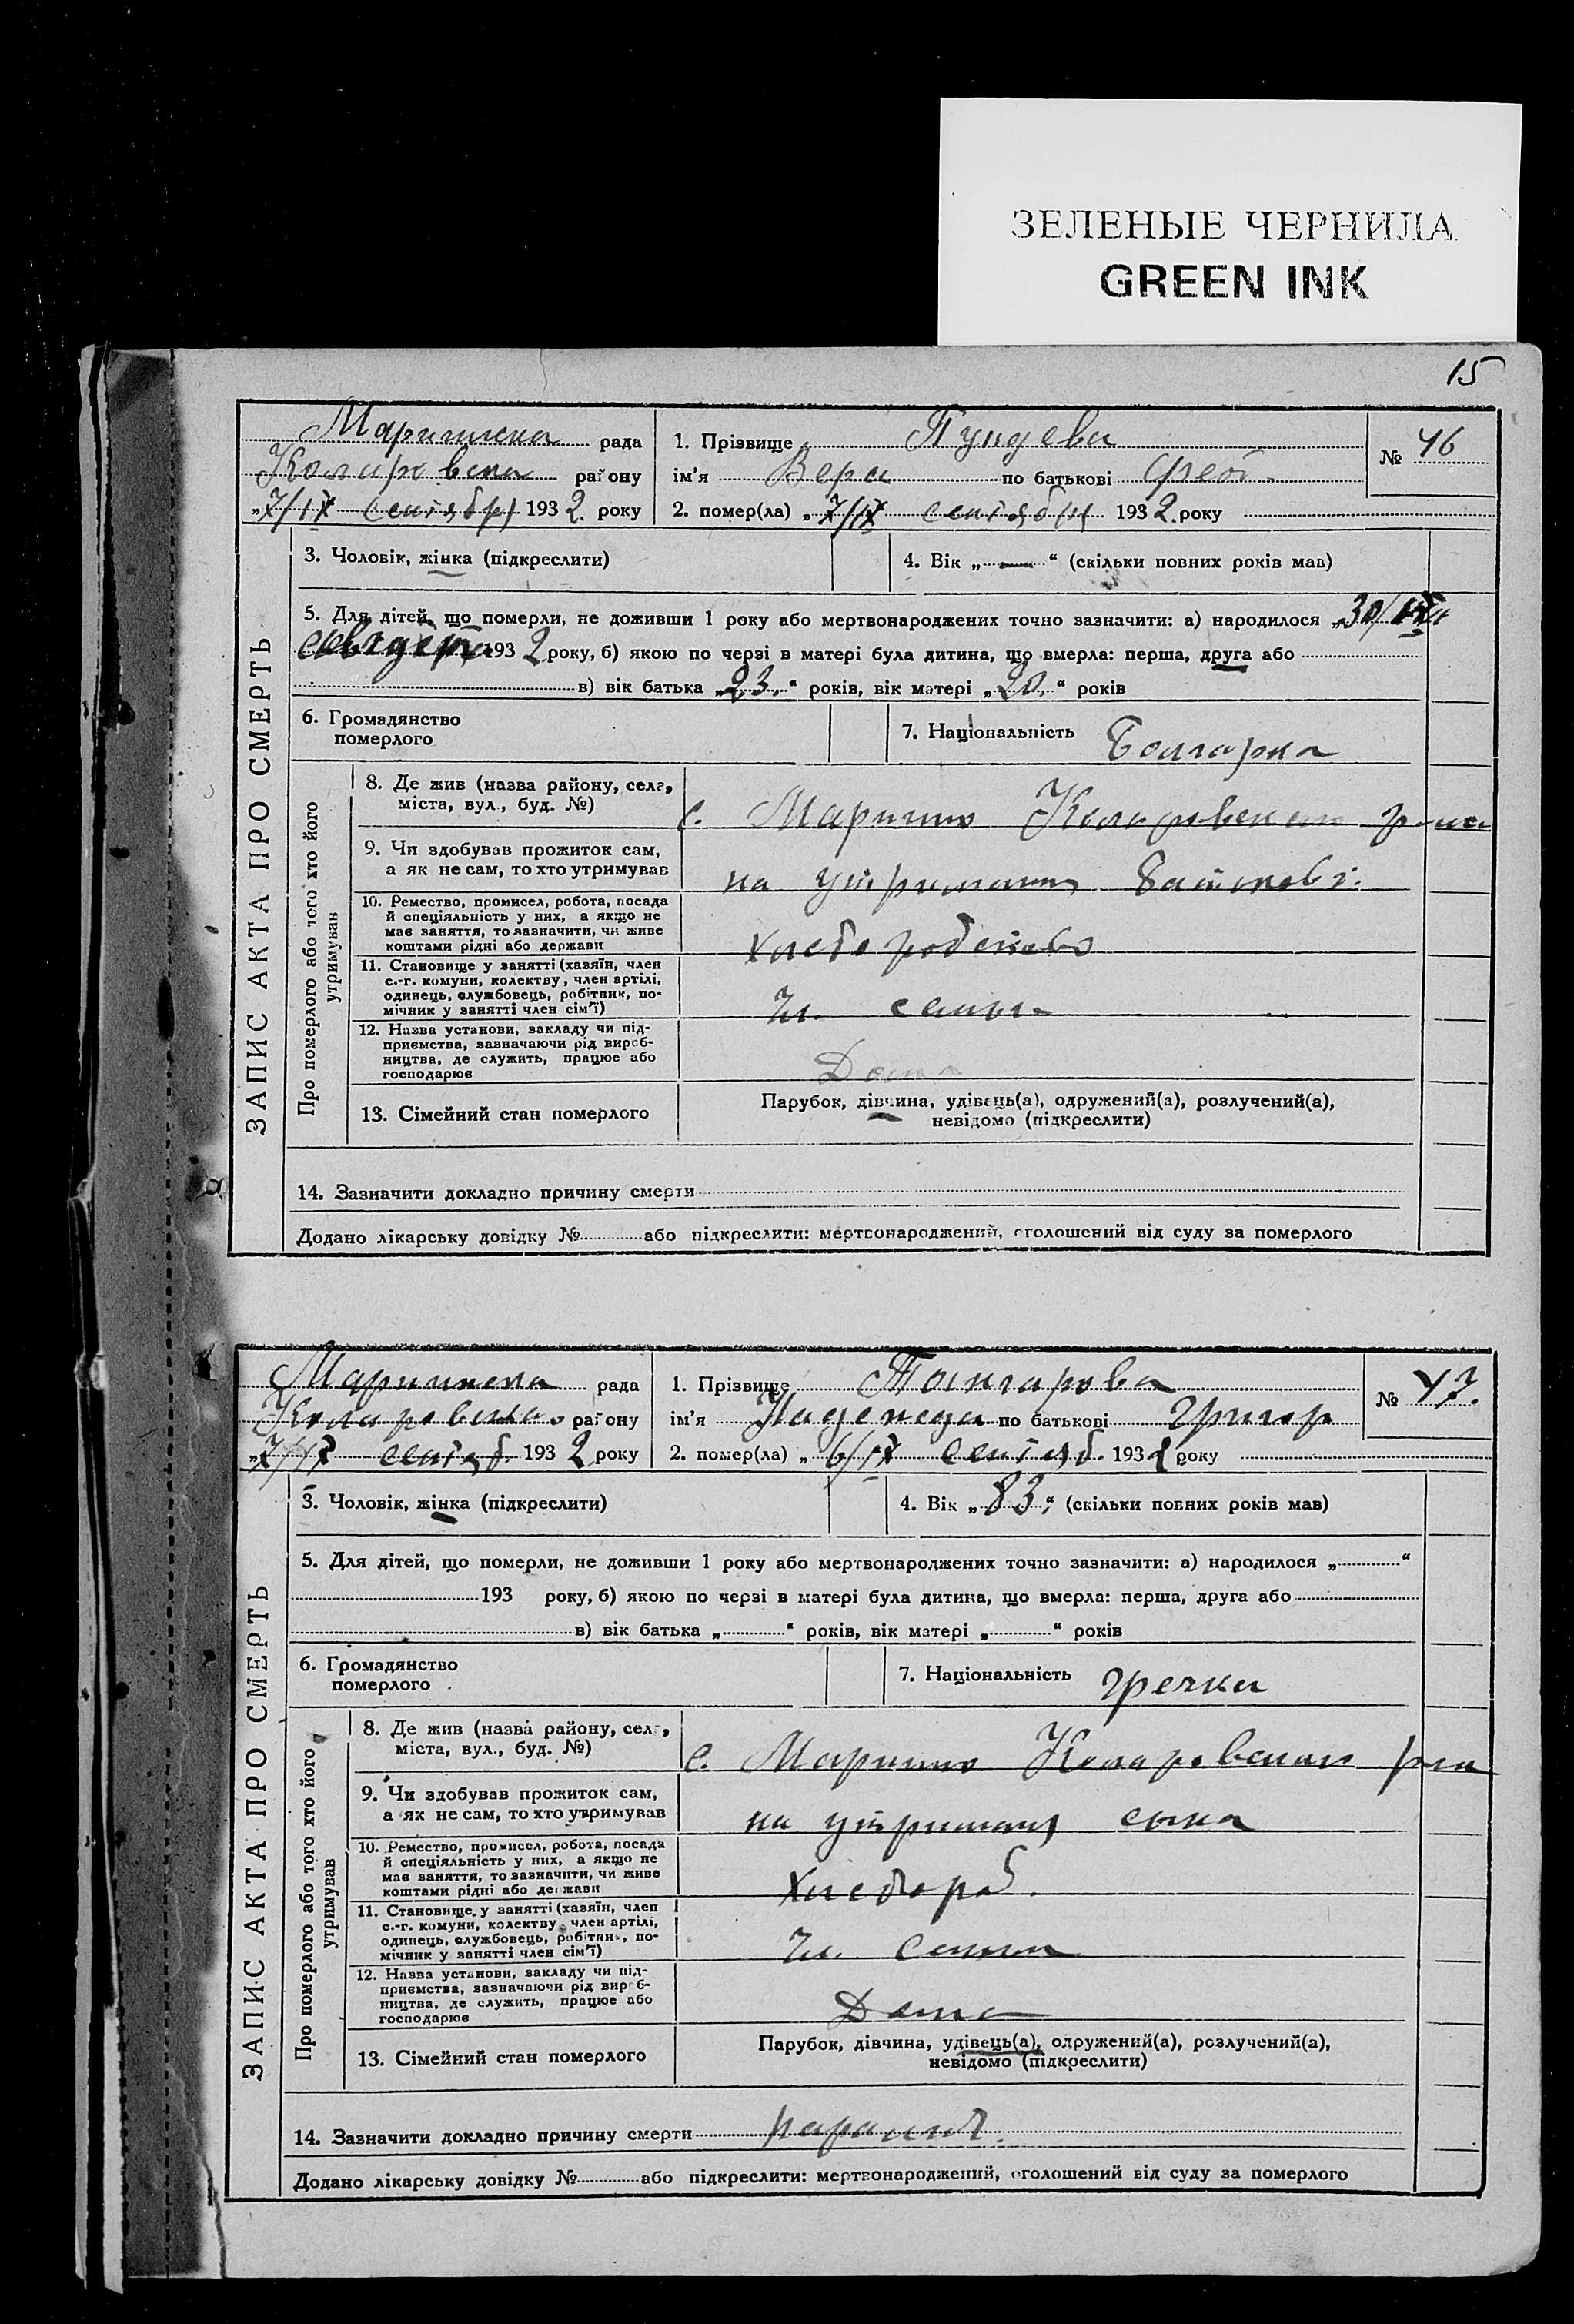 ЗЕЛЕНЫЕ ЧЕРНИЛА
GREEN INK
15
ЗАПИС АКТА ПРО СМЕРТЬ
рада
району
„7/IX 1932 року
1. Прізвище
ім'я Вера по батькові
2. помер(ла) „7/IX 1932 року
№ 46
3. Чоловік, жінка (підкреслити)
4. Вік „ — “ (скільки повних років мав)
5. Для дітей, що померли, не доживши 1 року або мертвонароджених точно зазначити: а) народилося „30/
1932 року, б) якою по черзі в матері була дитина, що вмерла: перша, друга або
в) вік батька „23“ років, вік матері „20“ років
6. Громадянство
померлого
7. Національність Болгарка
Про померлого або того хто його
утримував
8. Де жив (назва району, села,
міста, вул., буд. №)
с.
9. Чи здобував прожиток сам,
а як не сам, то хто утримував
на
10. Ремество, промисел, робота, посада
й спеціяльність у них, а якщо не
має заняття, то зазначити, чи живе
коштами рідні або держави
11. Становище у занятті (хазяїн, член
с.-г. комуни, колективу, член артілі,
одинець, службовець, робітник, по-
мічник у занятті член сім'ї)
Чл. семьи
12. Назва установи, закладу чи під-
приємства, зазначаючи рід вироб-
ництва, де служить, працює або
господарює
Дома
13. Сімейний стан померлого
Парубок, дівчина, удівець(а), одружений(а), розлучений(а),
невідомо (підкреслити)
14. Зазначити докладно причину смерти
Додано лікарську довідку № або підкреслити: мертвонароджений, оголошений від суду за померлого
ЗАПИС АКТА ПРО СМЕРТЬ
рада
району
„7/IX 1932 року
1. Прізвище
ім'я Надежда по батькові Григор
2. помер(ла) „6/IX 1932 року
№ 47.
3. Чоловік, жінка (підкреслити)
4. Вік „83“ (скільки повних років мав)
5. Для дітей, що померли, не доживши 1 року або мертвонароджених точно зазначити: а) народилося „ “
193 року, б) якою по черзі в матері була дитина, що вмерла: перша, друга або
в) вік батька „ “ років, вік матері „ “ років
6. Громадянство
померлого
7. Національність гречка
Про померлого або того хто його
утримував
8. Де жив (назва району, села,
міста, вул., буд. №)
с.
9. Чи здобував прожиток сам,
а як не сам, то хто утримував
на сына
10. Ремество, промисел, робота, посада
й спеціяльність у них, а якщо не
має заняття, то зазначити, чи живе
коштами рідні або держави
Хлебороб
11. Становище у занятті (хазяїн, член
с.-г. комуни, колективу, член артілі,
одинець, службовець, робітник, по-
мічник у занятті член сім'ї)
Чл. семьи
12. Назва установи, закладу чи під-
приємства, зазначаючи рід вироб-
ництва, де служить, працює або
господарює
Дома
13. Сімейний стан померлого
Парубок, дівчина, удівець(а), одружений(а), розлучений(а),
невідомо (підкреслити)
14. Зазначити докладно причину смерти
Додано лікарську довідку № або підкреслити: мертвонароджений, оголошений від суду за померлого